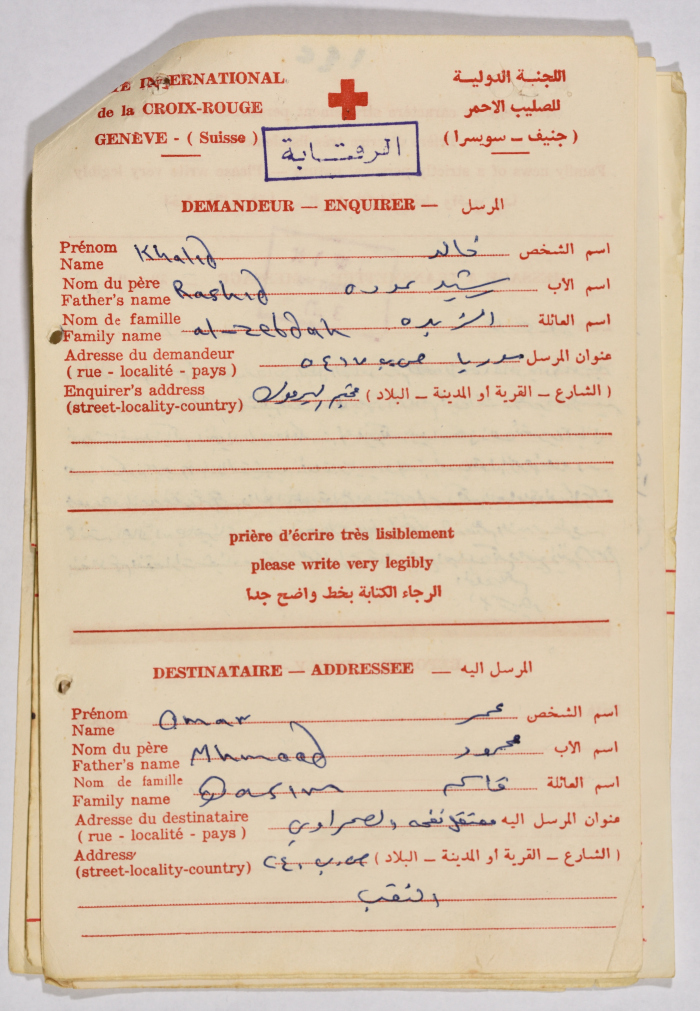 INTERNATIONAL
de la CROIX-ROUGE
GENÈVE - (Suisse)
اللجنية الدولية
للصليب الاحمر
(جنيف ــ سويسرا)
الرقابة
DEMANDEUR — ENQUIRER — المرسل
Prénom
Name Khalid خالد اسم الشخص
Nom du père
Father's name Rashid رشيد اسم الاب
Nom de famille
Family name al-zebdah الزبده اسم العائلة
Adresse du demandeur
(rue - localité - pays) سوريا ص.ب ٥٤١٧ عنوان المرسل
Enquirer's address
(street-locality-country) مخيم اليرموك (الشارع ــ القرية او المدينة ــ البلاد)
prière d'écrire très lisiblement
please write very legibly
الرجاء الكتابة بخط واضح جدا
DESTINATAIRE — ADDRESSEE — المرسل اليه
Prénom
Name Omar عمر اسم الشخص
Nom du père
Father's name Mhmood محمود اسم الاب
Nom de famille
Family name Qasim قاسم اسم العائلة
Adresse du destinataire
(rue - localité - pays) معتقل نفحه الصحراوي عنوان المرسل اليه
Address
(street-locality-country) ص.ب ٢٤٠ (الشارع ــ القرية او المدينة ــ البلاد)
النقب